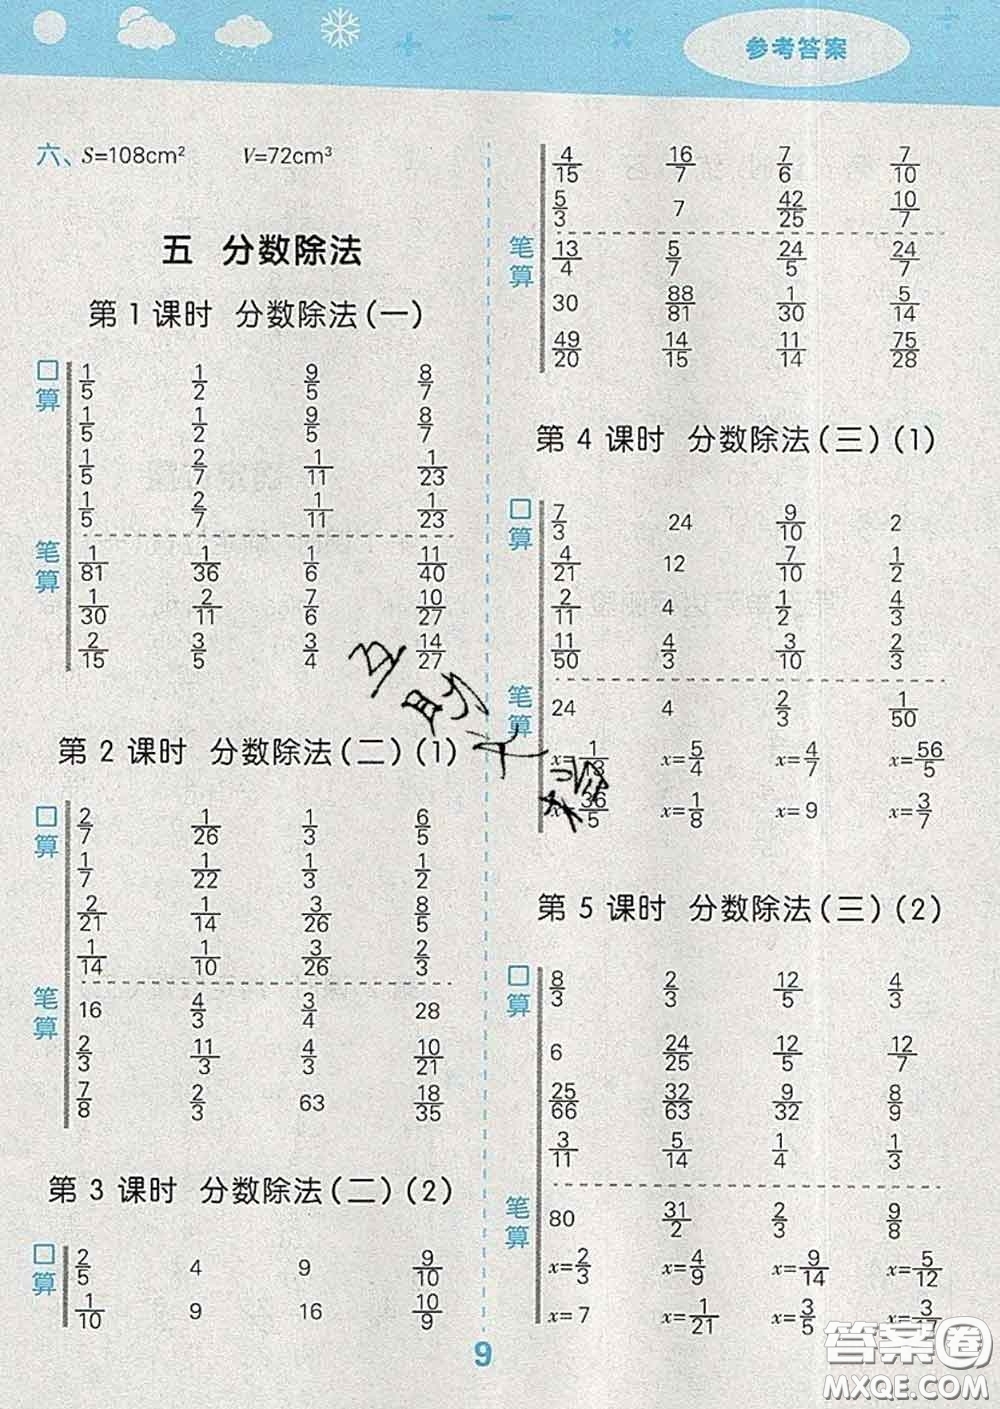 参考答案
六、S=108cm² V=72cm³
五 分数除法
第 1 课时 分数除法(一)
口算
1/5 1/2 9/5 8/7
1/5 1/2 9/5 8/7
1/5 2/7 1/11 1/23
1/5 2/7 1/11 1/23
笔算
1/81 1/36 1/6 11/40
1/30 2/11 7/6 10/27
2/15 3/5 3/4 14/27
第 2 课时 分数除法(二)(1)
口算
2/7 1/26 1/3 6/5
1/7 1/22 1/3 1/2
2/21 1/14 3/26 8/5
1/14 1/10 3/26 2/3
笔算
16 4/3 3/4 28
2/3 11/3 4/3 10/21
7/8 2/3 63 18/35
第 3 课时 分数除法(二)(2)
口算
2/5 4 9 9/10
1/10 9 16 10/9
4/15 16/7 7/6 7/10
5/3 7 42/25 10/7
笔算
13/4 5/7 24/5 24/7
30 88/81 1/30 5/14
49/20 14/15 11/14 75/28
第 4 课时 分数除法(三)(1)
口算
7/3 24 9/10 2
4/21 12 7/10 1/2
2/11 4 1/2 4/3
11/50 4/3 3/10 2/3
笔算
24 4 2/3 1/50
x=1/13 x=5/4 x=4/7 x=56/5
x=36/5 x=1/8 x=9 x=3/7
第 5 课时 分数除法(三)(2)
口算
8/3 2/3 12/5 4/3
6 24/25 12/5 12/7
25/66 32/63 9/32 8/9
3/11 5/14 1/4 1/3
笔算
80 31/2 2/3 9/8
x=2/3 x=4/9 x=9/14 x=5/12
x=7 x=1/21 x=3/5 x=3/17
9
答案圈
MXQE.COM